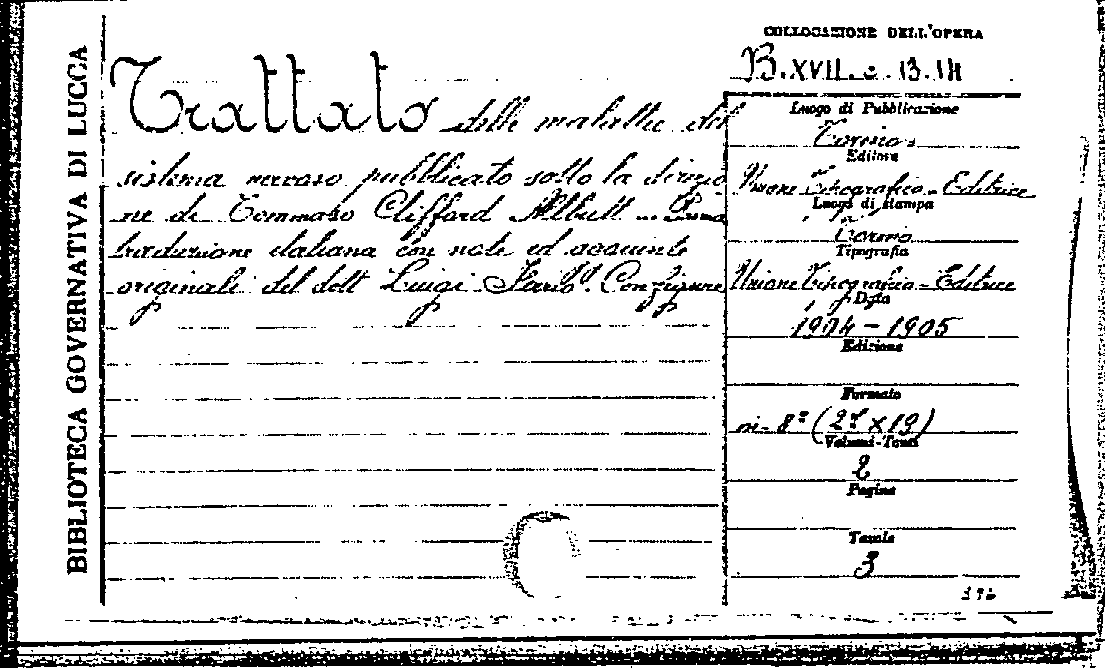 BIBLIOTECA GOVERNATIVA DI LUCCA
Trattato delle malattie del
sistema nervoso pubblicato sotto la direzio
ne di Tommaso Clifford Albutt - Prima
traduzione italiana con note ed aggiunte
originali del dott Luigi
COLLOCAZIONE DELL'OPERA
B. XVII. e. 13. 14
Luogo di Pubblicazione
Torino
Editore
Unione Tipografico - Editrice
Luogo di stampa
Torino
Tipografia
Unione Tipografico - Editrice
Data
1904 - 1905
Edizione
Formato
in-8º
Volumi-Tomi
2
Pagine
Tavole
3